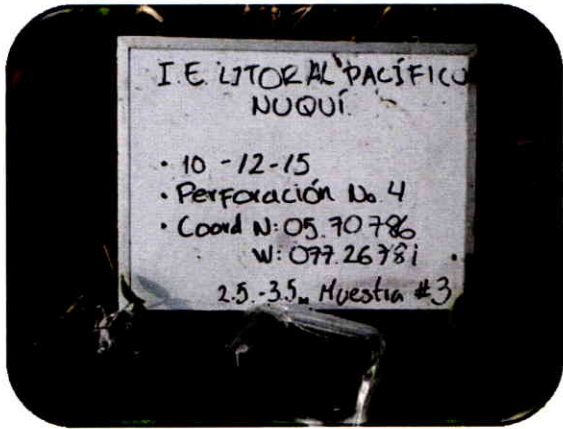 I.E. LITORAL PACÍFICO
NUQUÍ.
• 10-12-15
• Perforación No. 4
• Coord N: 05.70786
W: 077.26781
2.5.-3.5m Muestra #3